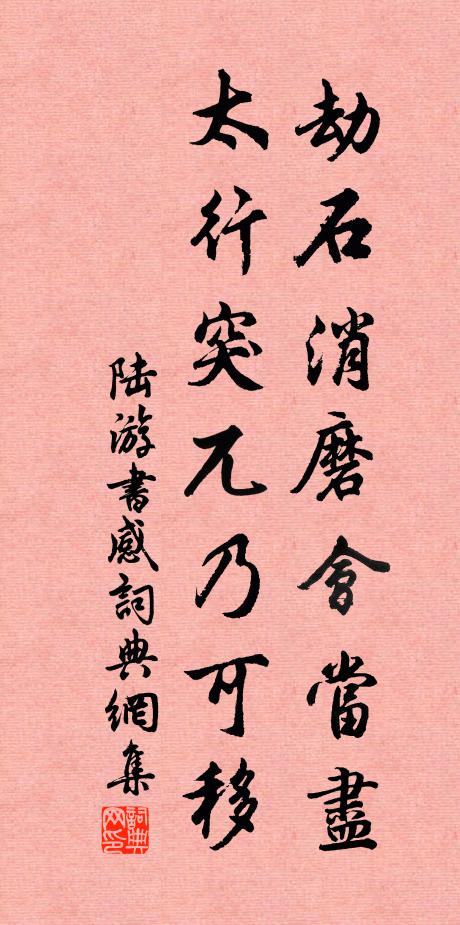 劫石消磨會當盡
太行突兀乃可移
陆游書感詞典網集
詞典网印